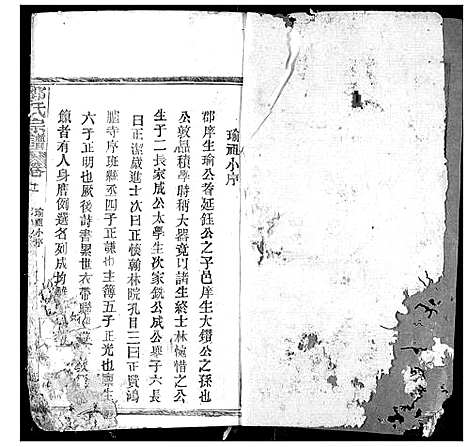 瑜祖小序
郡庠生瑜公者延鈺公之子邑庠生大鑽公之孫也
公敦品積學時稱大器竟以諸生終士林惋惜之公
生子二長家成公太學生次家銑公成公舉子六長
曰正潔歲進士次曰正懷翰林院孔目三曰正贊鴻
臚寺序班 四子正謙也主簿五子正光也
六子正明也厥後詩書累世衣帶聯
饋者有人身膺倒選名列成均
氏宗譜 卷 瑜祖小序